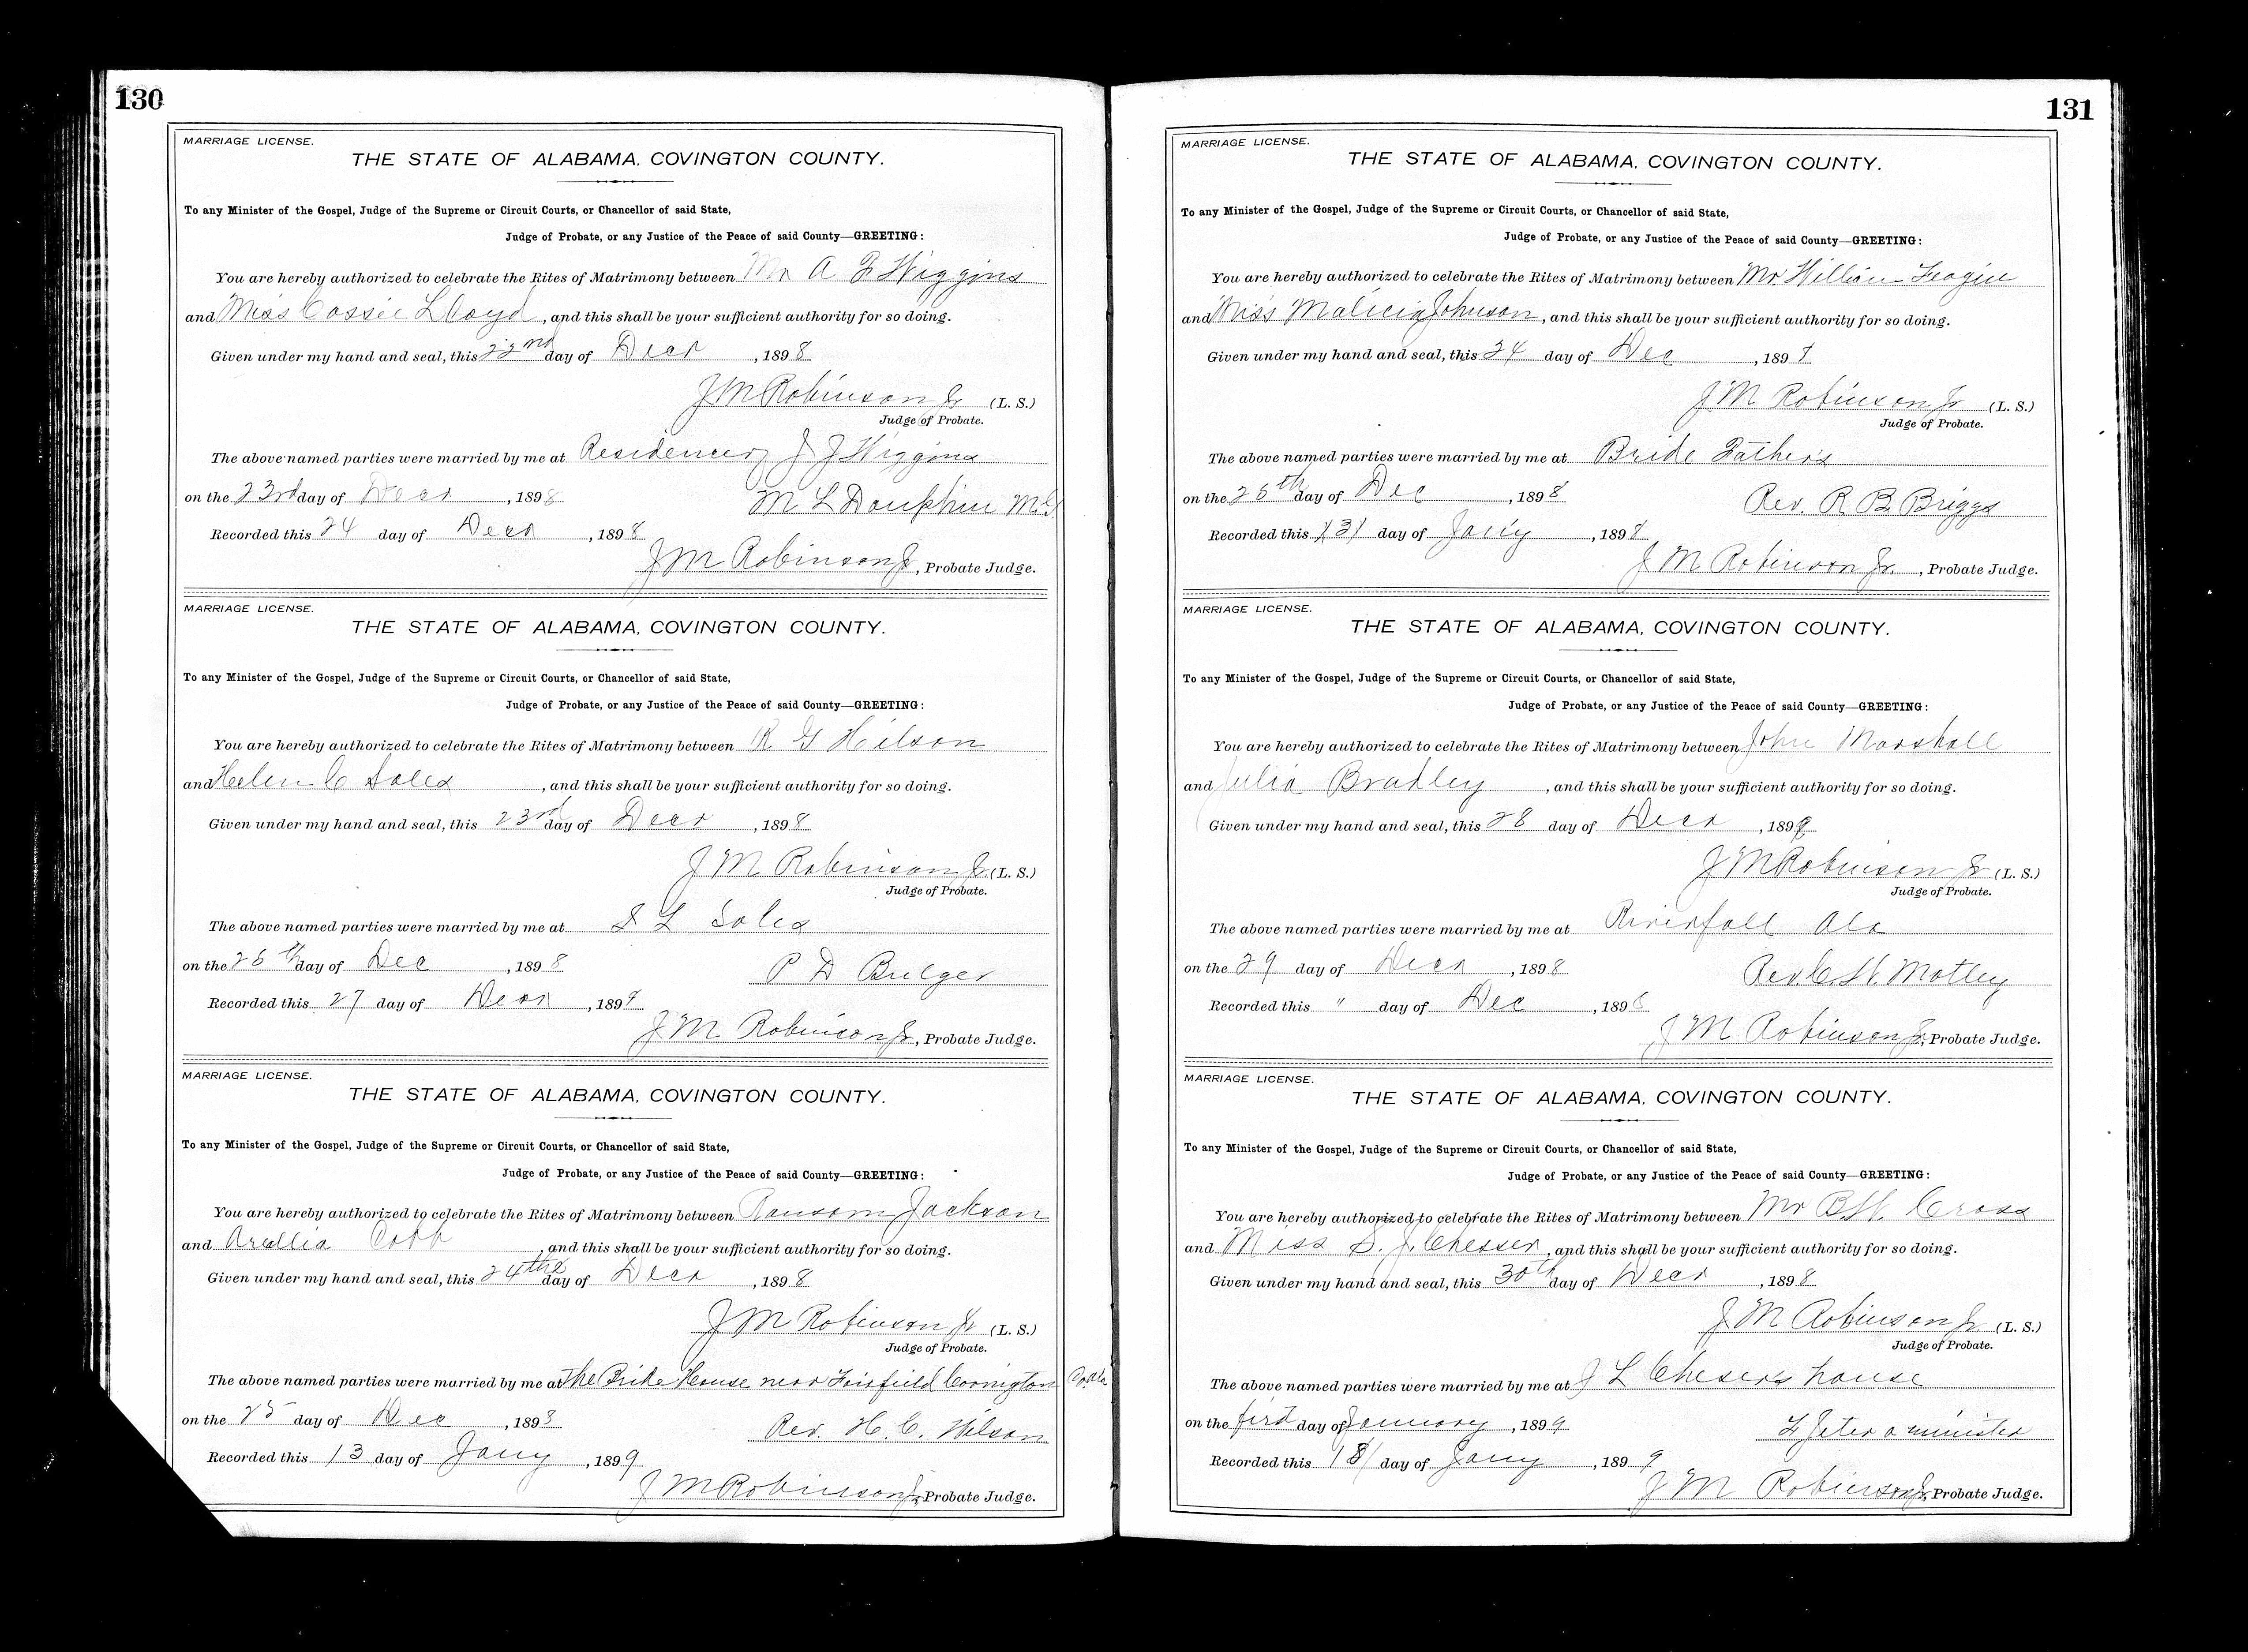 130
MARRIAGE LICENSE.
THE STATE OF ALABAMA, COVINGTON COUNTY.
To any Minister of the Gospel, Judge of the Supreme or Circuit Courts, or Chancellor of said State,
Judge of Probate, or any Justice of the Peace of said County—GREETING:
You are hereby authorized to celebrate the Rites of Matrimony between Mr A F Wiggins
and Miss Cassie Lloyd, and this shall be your sufficient authority for so doing.
Given under my hand and seal, this 22nd day of Decr, 1898
J M Robinson Jr (L. S.)
Judge of Probate.
The above named parties were married by me at Residence of J J Wiggins
on the 23rd day of Decr, 1898 M L Dauphin M.G.
Recorded this 24 day of Decr, 1898
J M Robinson Jr, Probate Judge.
MARRIAGE LICENSE.
THE STATE OF ALABAMA, COVINGTON COUNTY.
To any Minister of the Gospel, Judge of the Supreme or Circuit Courts, or Chancellor of said State,
Judge of Probate, or any Justice of the Peace of said County—GREETING:
You are hereby authorized to celebrate the Rites of Matrimony between R G Hilson
and Helen C Soles, and this shall be your sufficient authority for so doing.
Given under my hand and seal, this 23rd day of Decr, 1898
J M Robinson Jr (L. S.)
Judge of Probate.
The above named parties were married by me at S L Soles
on the 25th day of Dec, 1898 P D Bulger
Recorded this 27 day of Decr, 1898
J M Robinson Jr, Probate Judge.
MARRIAGE LICENSE.
THE STATE OF ALABAMA, COVINGTON COUNTY.
To any Minister of the Gospel, Judge of the Supreme or Circuit Courts, or Chancellor of said State,
Judge of Probate, or any Justice of the Peace of said County—GREETING:
You are hereby authorized to celebrate the Rites of Matrimony between Ransom Jackson
and Arellia Cobb, and this shall be your sufficient authority for so doing.
Given under my hand and seal, this 24the day of Decr, 1898
J M Robinson Jr (L. S.)
Judge of Probate.
The above named parties were married by me at The Bride House near Fairfield Covington Co. Ala
on the 25 day of Dec, 1898 Rev. H. C. Wilson
Recorded this 13 day of Jany, 1899
J M Robinson Jr, Probate Judge.
131
MARRIAGE LICENSE.
THE STATE OF ALABAMA, COVINGTON COUNTY.
To any Minister of the Gospel, Judge of the Supreme or Circuit Courts, or Chancellor of said State,
Judge of Probate, or any Justice of the Peace of said County—GREETING:
You are hereby authorized to celebrate the Rites of Matrimony between Mr William Feagin
and Miss Malicia Johnson, and this shall be your sufficient authority for so doing.
Given under my hand and seal, this 24 day of Dec, 1898
J M Robinson Jr (L. S.)
Judge of Probate.
The above named parties were married by me at Bride Father's
on the 25th day of Dec, 1898 Rev. R B Briggs
Recorded this 13 day of Jany, 1898
J M Robinson Jr., Probate Judge.
MARRIAGE LICENSE.
THE STATE OF ALABAMA, COVINGTON COUNTY.
To any Minister of the Gospel, Judge of the Supreme or Circuit Courts, or Chancellor of said State,
Judge of Probate, or any Justice of the Peace of said County—GREETING:
You are hereby authorized to celebrate the Rites of Matrimony between John Marshall
and Julia Bradley, and this shall be your sufficient authority for so doing.
Given under my hand and seal, this 28 day of Decr, 1898
J M Robinson Jr (L. S.)
Judge of Probate.
The above named parties were married by me at Riverfall Ala
on the 29 day of Decr, 1898 Rev. C. H. Motley
Recorded this " day of Dec, 1898
J M Robinson Jr, Probate Judge.
MARRIAGE LICENSE.
THE STATE OF ALABAMA, COVINGTON COUNTY.
To any Minister of the Gospel, Judge of the Supreme or Circuit Courts, or Chancellor of said State,
Judge of Probate, or any Justice of the Peace of said County—GREETING:
You are hereby authorized to celebrate the Rites of Matrimony between Mr B H. Cross
and Miss S. J. Chesser, and this shall be your sufficient authority for so doing.
Given under my hand and seal, this 30th day of Decr, 1898
J M Robinson Jr (L. S.)
Judge of Probate.
The above named parties were married by me at J L Chesers house
on the first day of January, 1899 F Jeter a minister
Recorded this 18 day of Jany, 1899
J M Robinson Jr, Probate Judge.